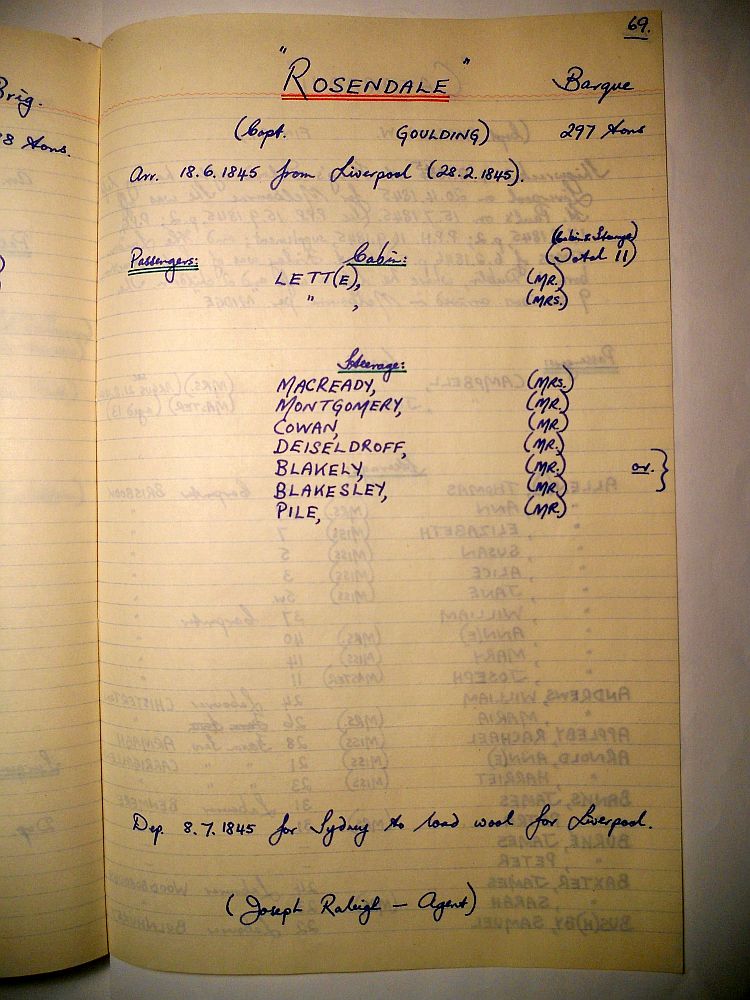 69.
"ROSENDALE" Barque
(Capt. GOULDING) 297 tons
Arr. 18.6.1845 from Liverpool (28.2.1845).
(Cabin & Steerage)
Passengers: Cabin: (Total 11)
LETT(E), (MR.)
" , (MRS.)
Steerage:
MACREADY, (MRS.)
MONTGOMERY, (MR.)
COWAN, (MR.)
DEISELDROFF, (MR.)
BLAKELY, (MR.) or. }
BLAKESLEY, (MR.)
PILE, (MR.)
Dep. 8.7.1845 for Sydney to load wool for Liverpool.
(Joseph Raleigh - Agent)
Brig.
8 tons.